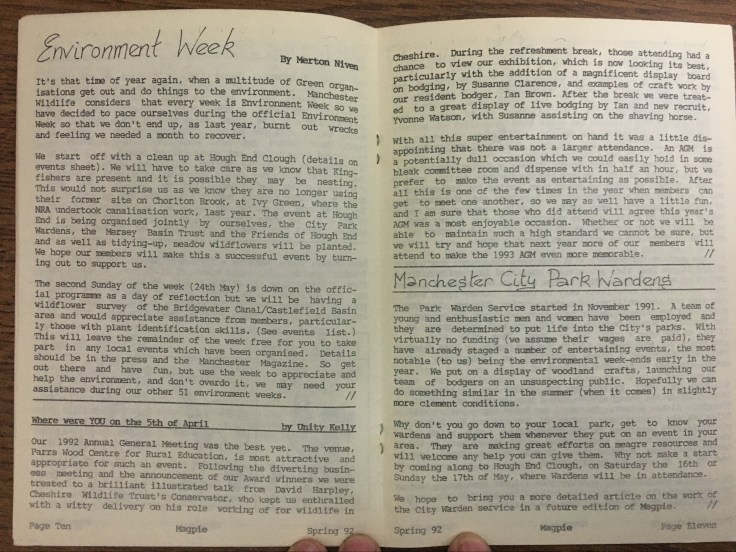 Environment Week
By Merton Niven
It's that time of year again, when a multitude of Green organ-
isations get out and do things to the environment. Manchester
Wildlife considers that every week is Environment Week so we
have decided to pace ourselves during the official Environment
Week so that we don't end up, as last year, burnt out wrecks
and feeling we needed a month to recover.
We start off with a clean up at Hough End Clough (details on
events sheet). We will have to take care as we know that King-
fishers are present and it is possible they may be nesting.
This would not surprise us as we know they are no longer using
their former site on Chorlton Brook, at Ivy Green, where the
NRA undertook canalisation work, last year. The event at Hough
End is being organised jointly by ourselves, the City Park
Wardens, the Mersey Basin Trust and the Friends of Hough End
and as well as tidying-up, meadow wildflowers will be planted.
We hope our members will make this a successful event by turn-
ing out to support us.
The second Sunday of the week (24th May) is down on the offic-
ial programme as a day of reflection but we will be having a
wildflower survey of the Bridgewater Canal/Castlefield Basin
area and would appreciate assistance from members, particular-
ly those with plant identification skills. (See events list.)
This will leave the remainder of the week free for you to take
part in any local events which have been organised. Details
should be in the press and the Manchester Magazine. So get
out there and have fun, but use the week to appreciate and
help the environment, and don't overdo it, we may need your
assistance during our other 51 environment weeks. //
Where were YOU on the 5th of April by Unity Kelly
Our 1992 Annual General Meeting was the best yet. The venue,
Parrs Wood Centre for Rural Education, is most attractive and
appropriate for such an event. Following the diverting busin-
ess meeting and the announcement of our Award winners we were
treated to a brilliant illustrated talk from David Harpley,
Cheshire Wildlife Trust's Conservator, who kept us enthralled
with a witty delivery on his role working of for wildlife in
Page Ten Magpie Spring 92
Cheshire. During the refreshment break, those attending had a
chance to view our exhibition, which is now looking its best,
particularly with the addition of a magnificent display board
on bodging, by Susanne Clarence, and examples of craft work by
our resident bodger, Ian Brown. After the break we were treat-
ed to a great display of live bodging by Ian and new recruit,
Yvonne Watson, with Susanne assisting on the shaving horse.
With all this super entertainment on hand it was a little dis-
appointing that there was not a larger attendance. An AGM is
a potentially dull occasion which we could easily hold in some
bleak committee room and dispense with in half an hour, but we
prefer to make the event as entertaining as possible. After
all this is one of the few times in the year when members can
get to meet one another, so we may as well have a little fun,
and I am sure that those who did attend will agree this year's
AGM was a most enjoyable occasion. Whether or not we will be
able to maintain such a high standard we cannot be sure, but
we will try and hope that next year more of our members will
attend to make the 1993 AGM even more memorable. //
Manchester City Park Wardens
The Park Warden Service started in November 1991. A team of
young and enthusiastic men and women have been employed and
they are determined to put life into the City's parks. With
virtually no funding (we assume their wages are paid), they
have already staged a number of entertaining events, the most
notable (to us) being the environmental week-ends early in the
year. We put on a display of woodland crafts, launching our
team of bodgers on an unsuspecting public. Hopefully we can
do something similar in the summer (when it comes) in slightly
more clement conditions.
Why don't you go down to your local park, get to know your
wardens and support them whenever they put on an event in your
area. They are making great efforts on meagre resources and
will welcome any help you can give them. Why not make a start
by coming along to Hough End Clough, on Saturday the 16th or
Sunday the 17th of May, where Wardens will be in attendance.
We hope to bring you a more detailed article on the work of
the City Warden service in a future edition of Magpie. //
Spring 92 Magpie Page Eleven